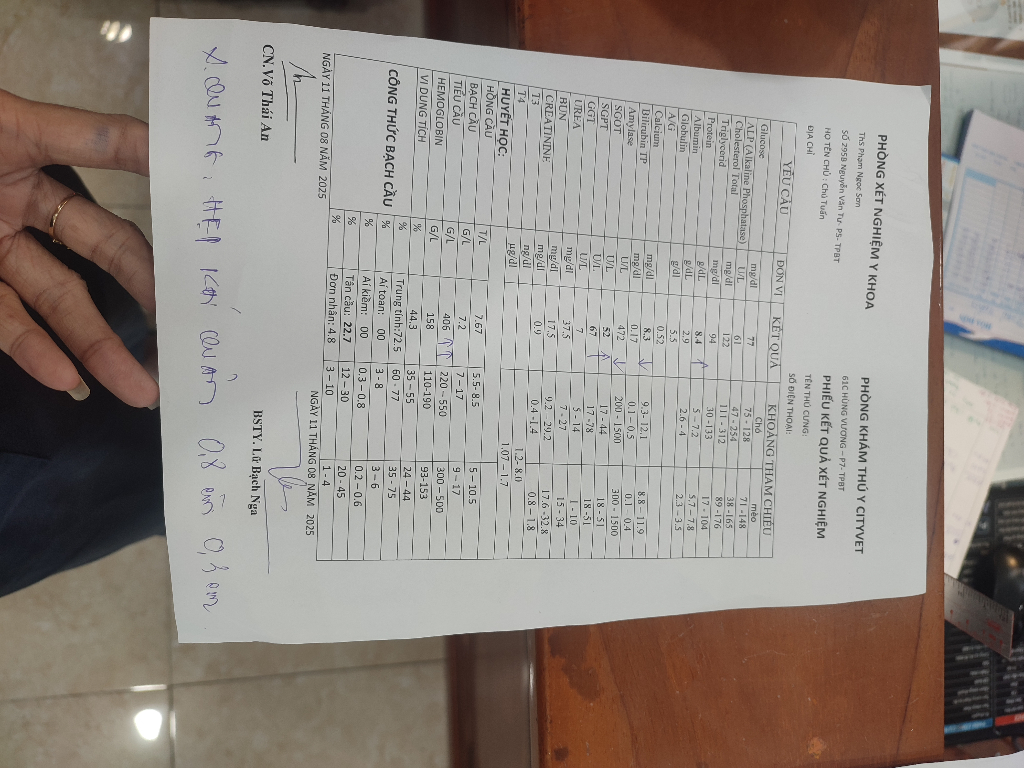 PHÒNG XÉT NGHIỆM Y KHOA
ThS Phạm Ngọc Sơn
SỐ 295B Nguyễn Văn Tự- P5- TPBT
HỌ TÊN CHỦ : Chú Tuấn
ĐỊA CHỈ
PHÒNG KHÁM THÚ Y CITYVET
61C HÙNG VƯƠNG – P7- TPBT
PHIẾU KẾT QUẢ XÉT NGHIỆM
TÊN THÚ CƯNG:
SỐ ĐIỆN THOẠI:
YÊU CẦU ĐƠN VỊ KẾT QUẢ KHOẢNG THAM CHIẾU
Chó mèo
Glucose mg/dl 77 75 - 128 71 -148
ALP( Alkaline Phosphatase) U/L 61 47 -254 38 -165
Cholesterol Total mg/dl 122 111 - 312 89 -176
Triglycerid mg/dl 94 30 -133 17 - 104
Protein g/dL 8.4 ↑ 5 – 7.2 5.7 – 7.8
Albumin g/dL 2.9 2.6 - 4 2.3 – 3.5
Globulin g/dl 5.5
A/G 0.52
Calcium mg/dl 8.3 ↓ 9.3-12.1 8.8 – 11.9
Bilirubin TP mg/dl 0.17 0.1 – 0.5 0.1 – 0.4
Amylase U/L 472 ↓ 200 - 1500 300 - 1500
SGOT U/L 52 ↑ 17 - 44 18 - 51
SGPT U/L 67 17 -78 18 -51
GGT U/L 7 5 - 14 1 - 10
UREA mg/dl 37.5 15 - 34
BUN mg/dl 17.5 9.2 -29.2 17.6 -32.8
CREATININE mg/dl 0.9 0.4 -1.4 0.8 – 1.8
T3 ng/dl
T4 µg/dl 1.07 – 1.7
HUYẾT HỌC:
HỒNG CẦU T/L 7.67 5.5-8.5 5 – 10.5
BẠCH CẦU G/L 7.2 7 – 17 9 – 17
TIỂU CẦU G/L 406 220 –550 300 – 500
HEMOGLOBIN G/L 158 110-190 93-153
VI DUNG TÍCH % 44.3 35 – 55 24 – 44
CÔNG THỨC BẠCH CẦU
% Trung tính:72.5 60 - 77 35 -75
% Ái toan: 00 3 - 8 3 – 6
% Ái kiềm: 00 0.3 – 0.8 0.2 – 0.6
% Tân cầu: 22.7 12 – 30 20 - 45
% Đơn nhân: 4.8 3 – 10 1 - 4
NGÀY 11 THÁNG 08 NĂM 2025
NGÀY 11 THÁNG 08 NĂM 2025
CN. Võ Thái An
BSTY. Lữ Bạch Nga
X. quang: HẸP KHÍ QUẢN